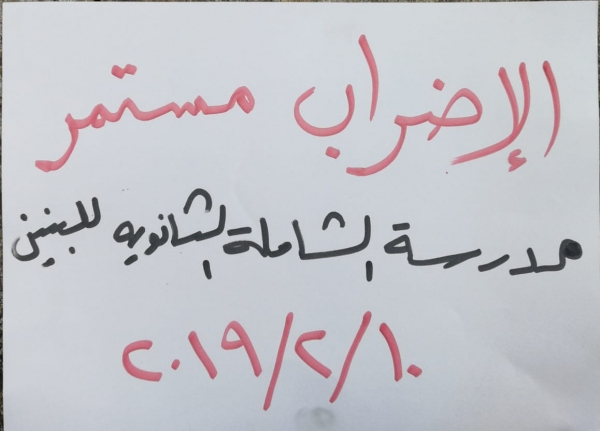 الإضراب مستمر
مدرسة الشاملة الثانويه للبنين
٢٠١٩/٢/١٠